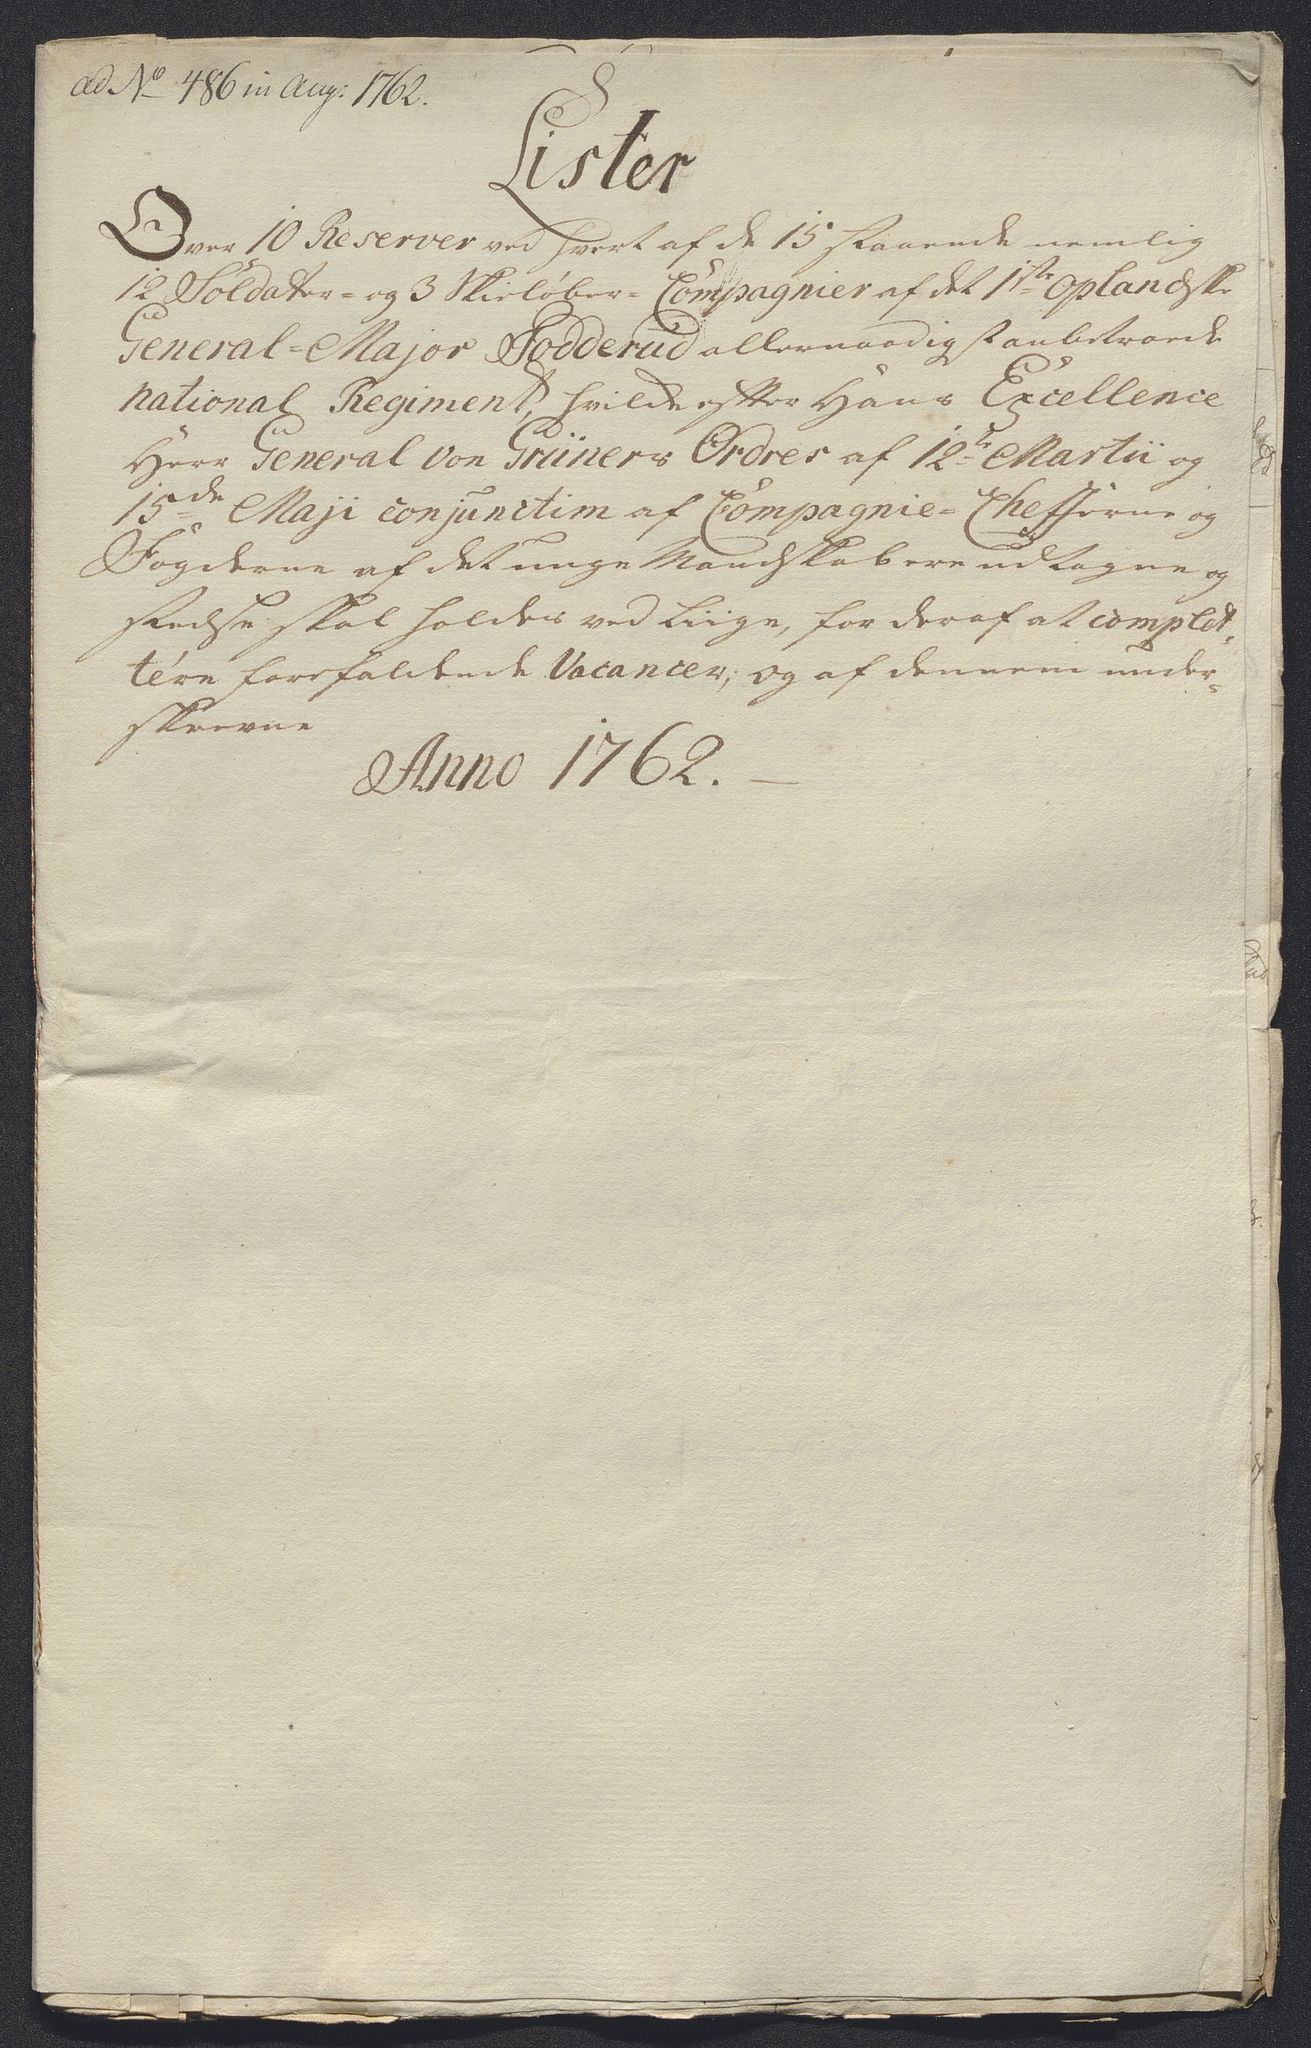 ad No 486 in Aug: 1762.
Lister
Over 10 Reserver ved hvert af de 15 staaende nemlig
12 Soldater- og 3 Skieløber- Compagnier af det 1ste Oplandske
General-Major Sodderud allernaadigst anbetroede
national Regiment, hvilke efter Hans Excellence
Herr General von Grüners Ordres af 12te Martii og
15de Maji conjunctim af Compagnie-Chefferne og
Fogderne af det unge Mandskab ere udtagne og
stedse skal holdes ved Liige, for deraf at complet-
tére forefaldende Vacancer, og af dennem under-
skrevne
Anno 1762. —